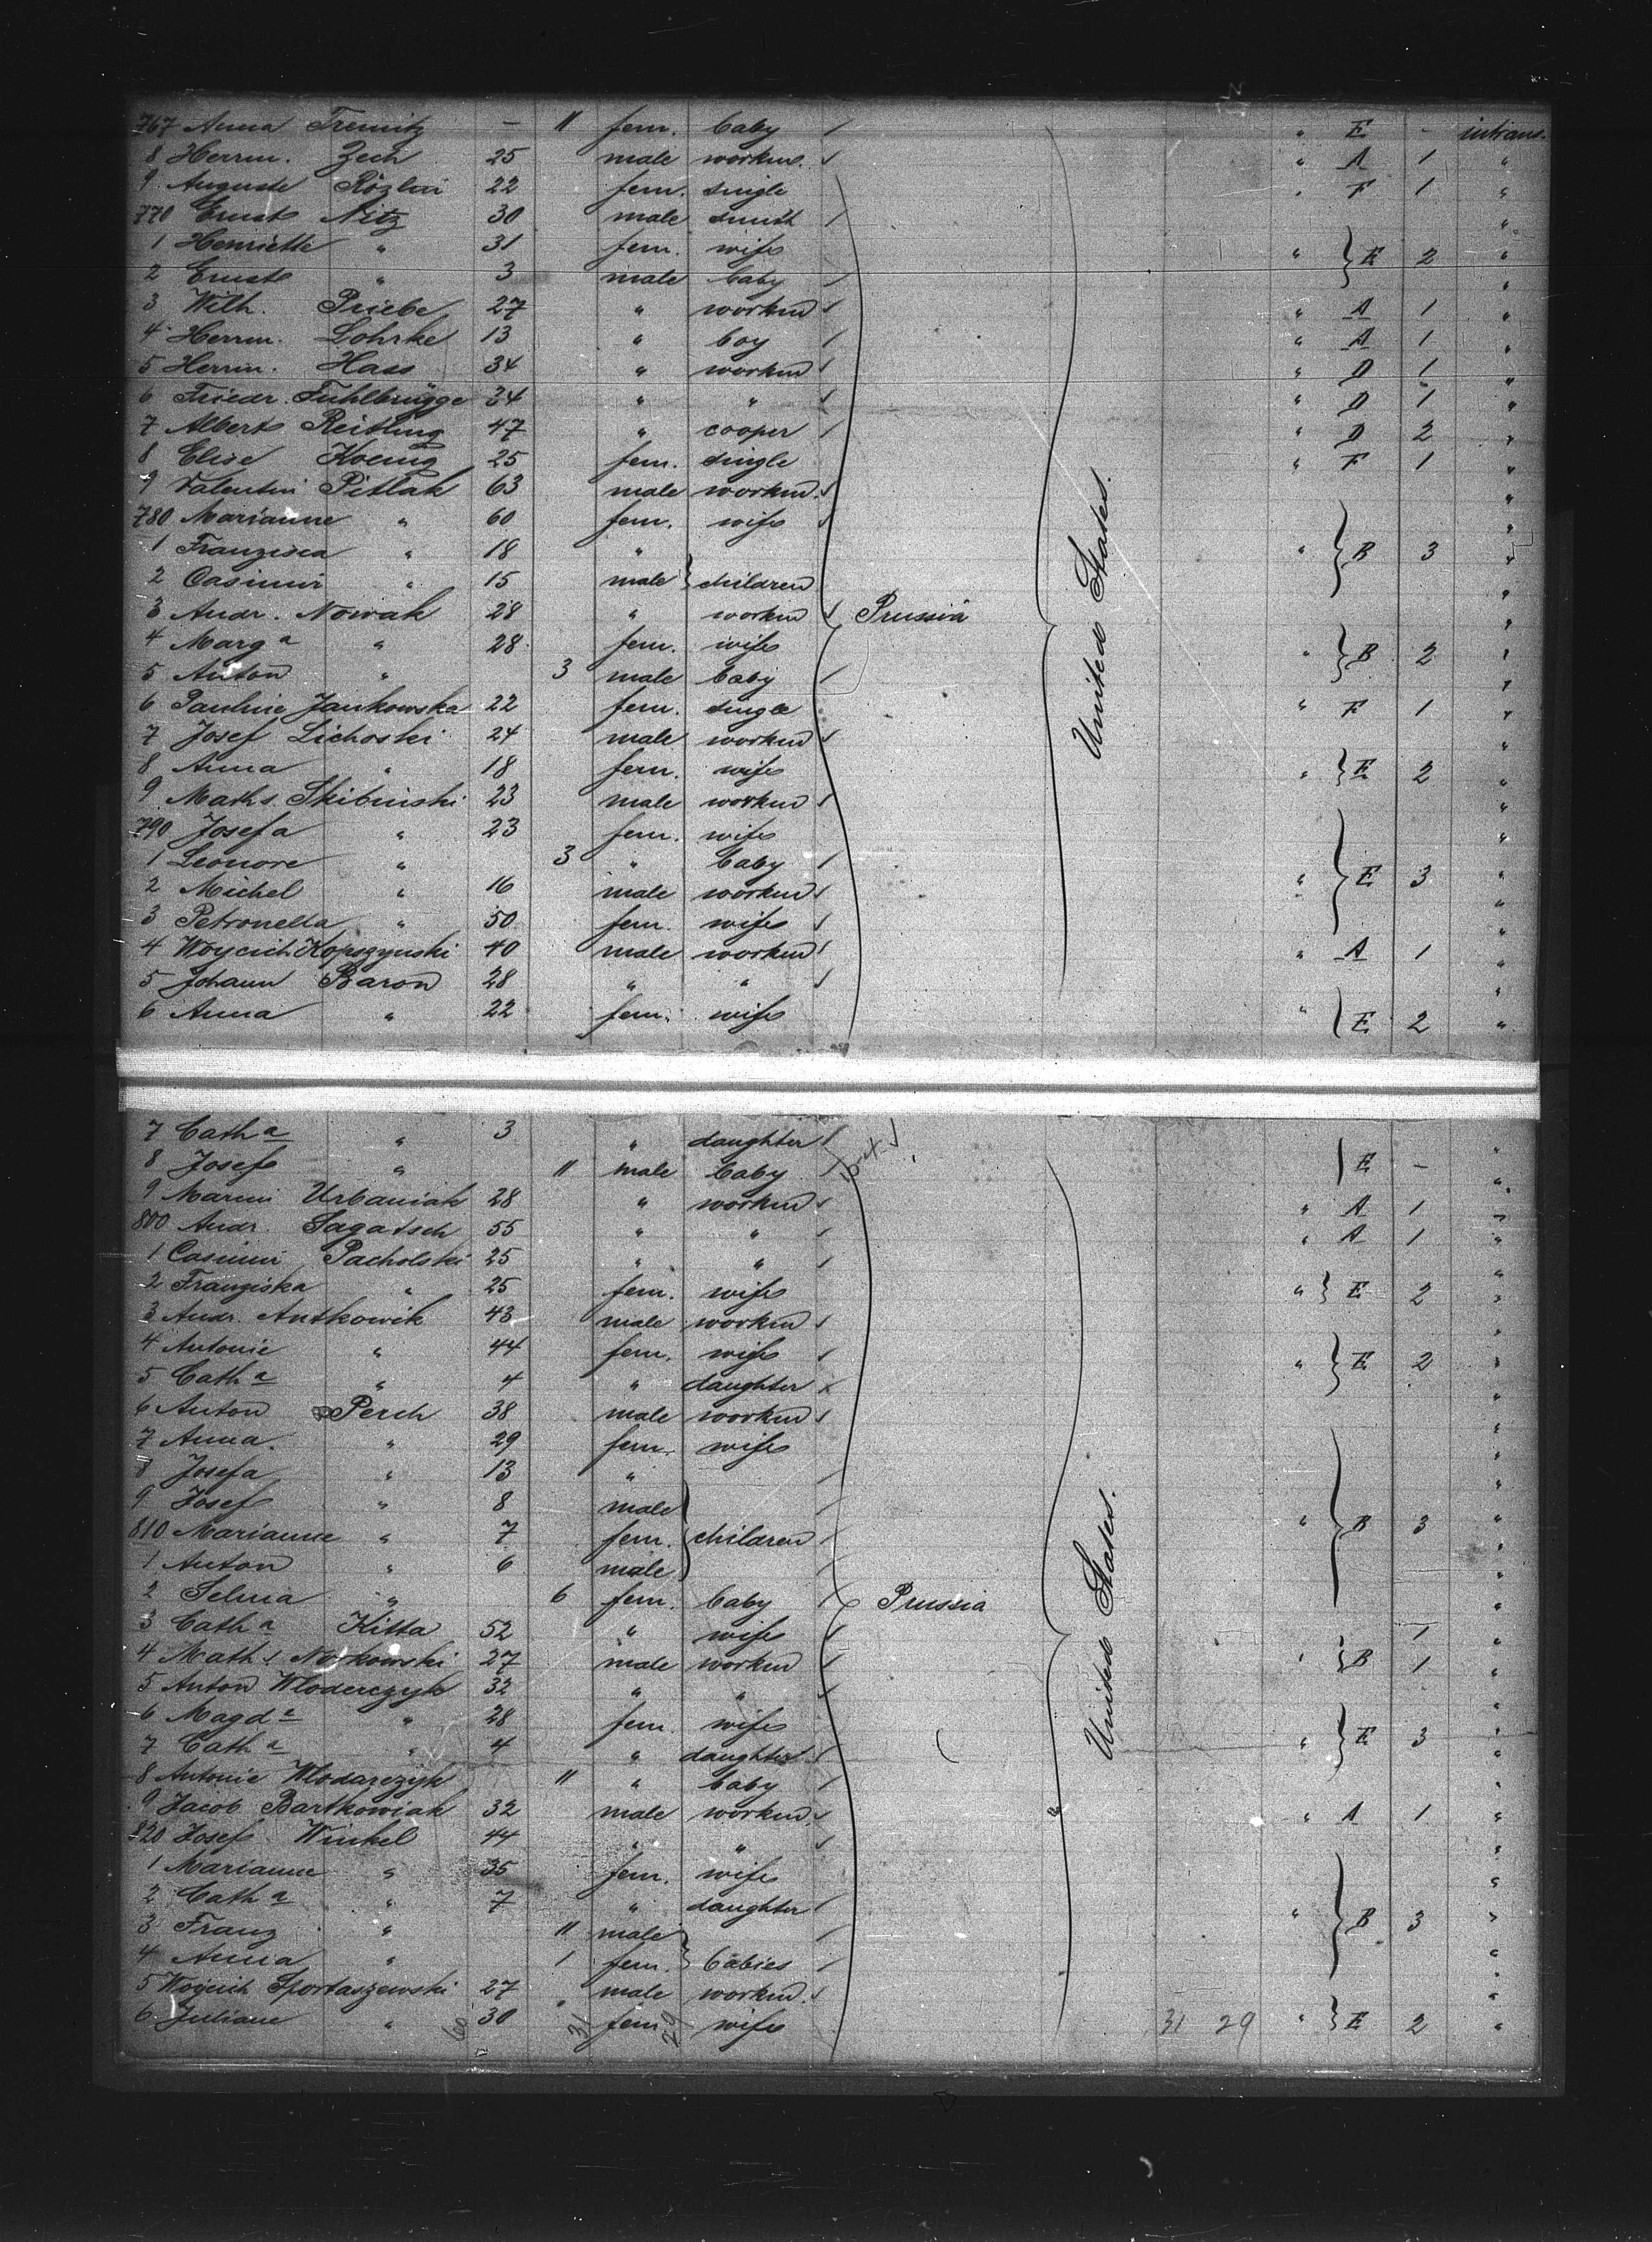 767 Anna Tremitz - 11 fem. baby / " E - intrans.
8 Herrm. Zech 25 male workm. " A 1 "
9 Auguste 22 fem. single " F 1 "
770 Ernst Nitz 30 male smith "
1 Henriette " 31 fem. wife " } E 2 "
2 Ernst " 3 male baby "
3 Wilh. Priebe 27 " workm " A 1 "
4 Herrm. Lohrke 13 " boy " A 1 "
5 Herrm. Hass 34 " workm " D 1 "
6 Friedr. Fuhlbrügge 34 " " " D 1 "
7 Albert Reitling 47 " cooper " D 2 "
8 Elise Koenig 25 fem. single " F 1 "
9 Valentin Pitlak 63 male workm. "
780 Marianne " 60 fem. wife "
1 Franzisca " 18 " " } B 3 "
2 Casimir " 15 male } children "
3 Andr. Nowak 28 " workm Prussia United States. "
4 Marg a " 28 fem. wife " } B 2 "
5 Anton " 3 male baby "
6 Pauline Jankowska 22 fem. single " F 1 "
7 Josef Lichoski 24 male workm "
8 Anna " 18 fem. wife " } E 2 "
9 Maths. Skibinski 23 male workm "
790 Josefa " 23 fem. wife "
1 Leonore " 3 " baby "
2 Michel " 16 male workm " } E 3 "
3 Petronella " 50 fem. wife "
4 Woycich Kopszynski 40 male workm " A 1 "
5 Johann Baron 28 " " "
6 Anna " 22 fem. wife " } E 2 "
7 Cath a " 3 " daughter "
8 Josef " 11 male baby } E - "
9 Marcin Urbaniak 28 " workm " A 1 "
800 Andr. Sagatsch 55 " " " A 1 "
1 Casimir Pacholski 25 " " "
2 Franziska " 25 fem. wife " } E 2 "
3 Andr. Antkowik 43 male workm "
4 Antonie " 44 fem. wife " } E 2 "
5 Cath a " 4 " daughter x "
6 Anton Perch 38 male workm "
7 Anna. " 29 fem. wife "
8 Josefa " 13 " "
9 Josef " 8 male "
810 Marianne " 7 fem. } children " } B 3 "
1 Anton " 6 male "
2 Selma " 6 fem. baby Prussia United States. "
3 Cath a Kitta 52 " wife 1 "
4 Maths. 27 male workm " } B 1 "
5 Anton Wloderczyk 32 " " "
6 Magd a " 28 fem. wife "
7 Cath a " 4 " daughter " } E 3 "
8 Antonie Wlodarczyk 11 " baby "
9 Jacob Bartkowiak 32 male workm. " A 1 "
820 Josef Winkel 44 " " "
1 Marianne " 35 fem. wife "
2 Cath a " 7 " daughter " } B 3 "
3 Franz " 11 male "
4 Anna " 1 fem. } babies "
5 Woycich Sportaszewski 27 male workm. "
6 Juliane " 30 fem. wife 31 29 " } E 2 "
60 31 29